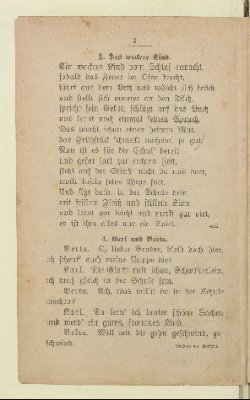 2
3. Das wackere Kind.
Ein wackres Kind vom Schlaf erwacht,
sobald das Feuer im Ofen kracht,
fährt aus dem Bett und wäscht sich frisch
und stellt sich munter an den Tisch,
spricht sein Gebet, schlägt auf das Buch
und lernt noch einmal seinen Spruch.
Das macht ihm einen heitern Mut,
das Frühstück schmeckt nochmal so gut.
Nun ist es für die Schul' bereit
und gehet fort zur rechten Zeit,
steht auf der Straß' nicht da und dort,
will seine Wege fort.
Und sitzt dann in der Schule drin
mit stillem Fleiß und stillem Sinn
und lernt gar leicht und merkt gar viel,
es ist ihm alles nur ein Spiel.
4. Karl und Berta.
Berta. O, lieber Bruder, bleib doch hier,
ich schenk' auch meine Puppe dir!
Karl. Die Glocke ruft schon, Schwesterlein,
ich muß gleich in der Schule sein.
Berta. Ach, was willst du in der Schule
machen?
Karl. Da lern' ich lauter schöne Sachen
und werd' ein gutes, frommes Kind.
Berta. Will mit dir gehn geschwind, ge-
schwind.